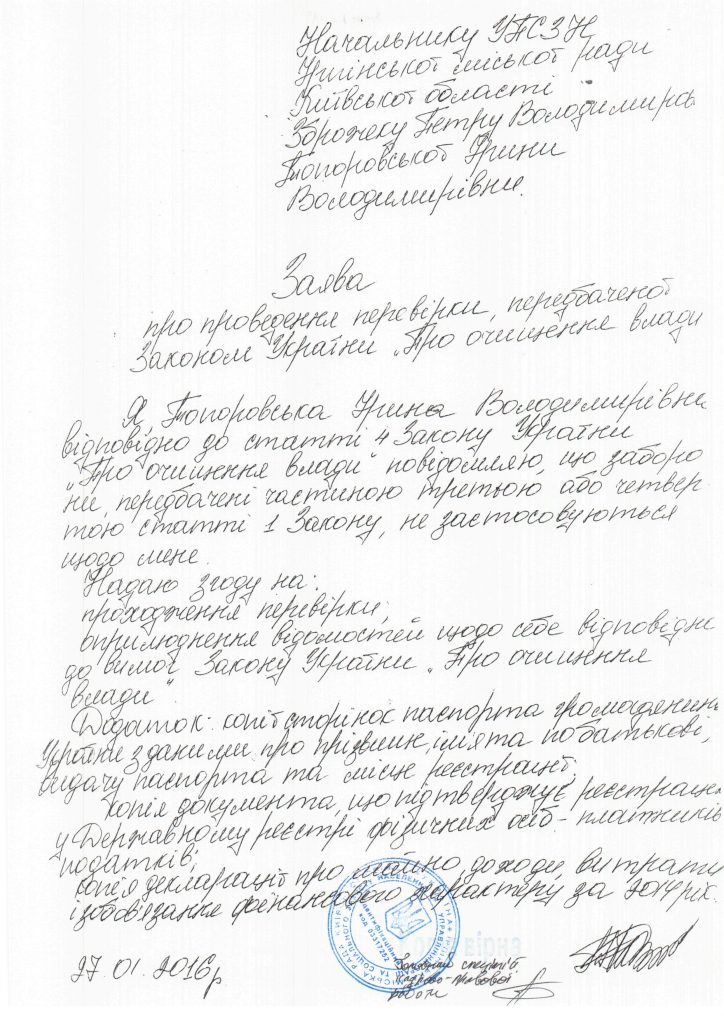 Начальнику УПСЗН
Ірпінської міської ради
Київської області
Зброжеку Петру Володимиров
Топоровської Ірини
Володимирівни.
Заява
про проведення перевірки, передбаченої
Законом України „Про очищення влади
Я, Топоровська Ірина Володимирівна
відповідно до статті 4 Закону України
„Про очищення влади" повідомляю, що заборо
ни, передбачені частиною третьою або четвер
тою статті 1 Закону, не застосовуються
щодо мене.
Надаю згоду на:
проходження перевірки;
оприлюднення відомостей щодо себе відповідно
до вимог Закону України „Про очищення
влади"
Додаток: копії сторінок паспорта громадянина
України з даними про прізвище, ім'я та по батькові,
видачу паспорта та місце реєстрації;
копія документа, що підтверджує реєстрацію
у Державному реєстрі фізичних осіб - платників
податків;
копія декларації про майно, доходи, витрати
і зобов'язання фінансового характеру за 2014 рік.
код 03317262
вірна
27.01.2016р
Головний спеціаліст
кадрово-правової
роботи